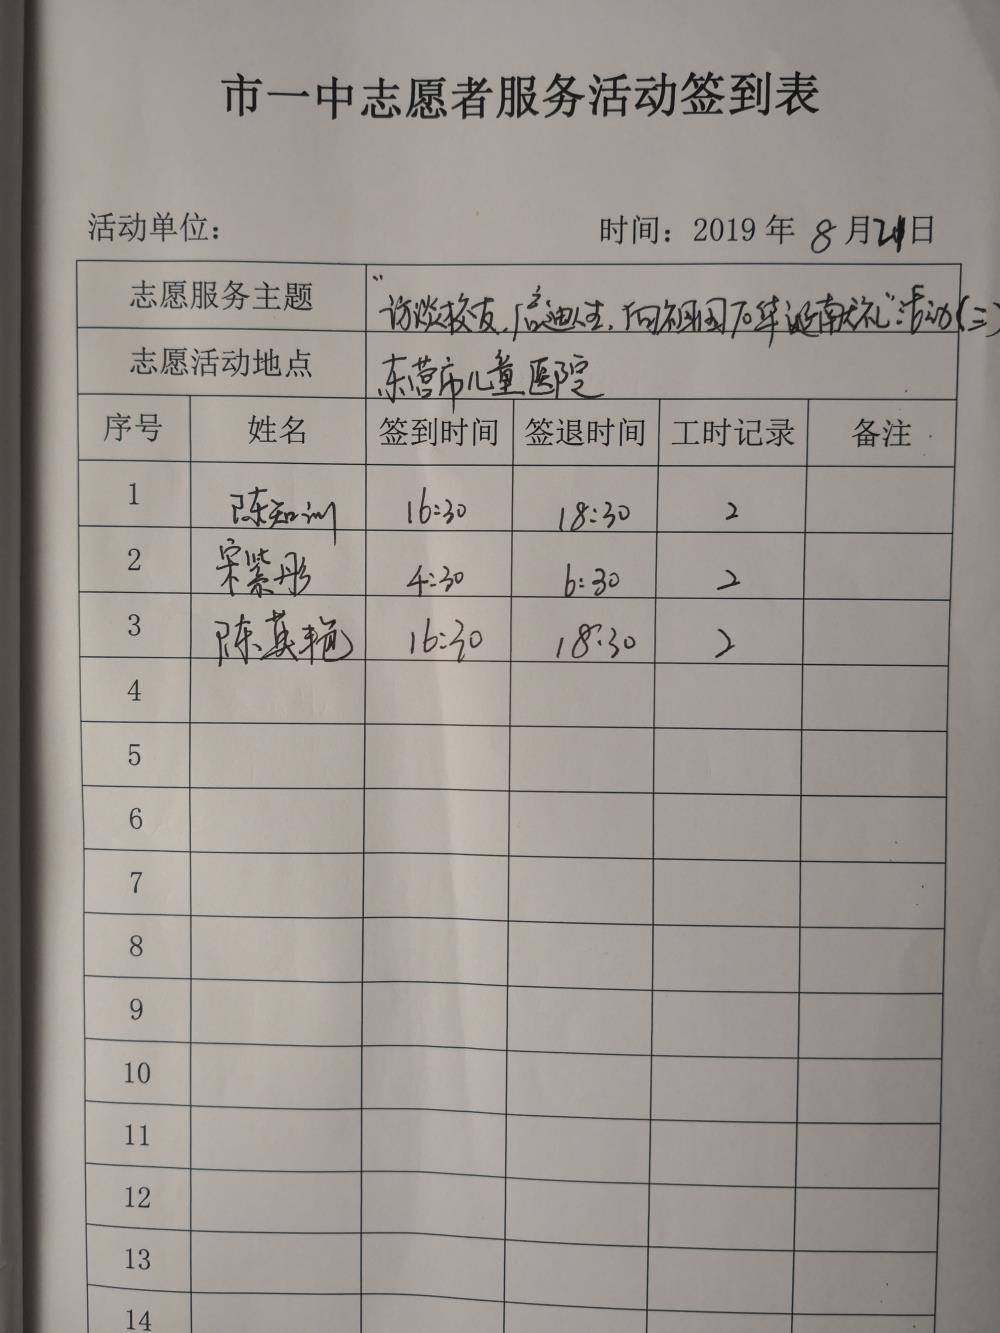 市一中志愿者服务活动签到表
活动单位： 时间：2019 年 8 月21日
志愿服务主题 “访谈校友，启迪人生，向祖国70华诞献礼”活动(三)
志愿活动地点 东营市儿童医院
序号 姓名 签到时间 签退时间 工时记录 备注
1 陈知训 16:30 18:30 2
2 宋紫彤 4:30 6:30 2
3 陈英艳 16:30 18:30 2
4
5
6
7
8
9
10
11
12
13
14